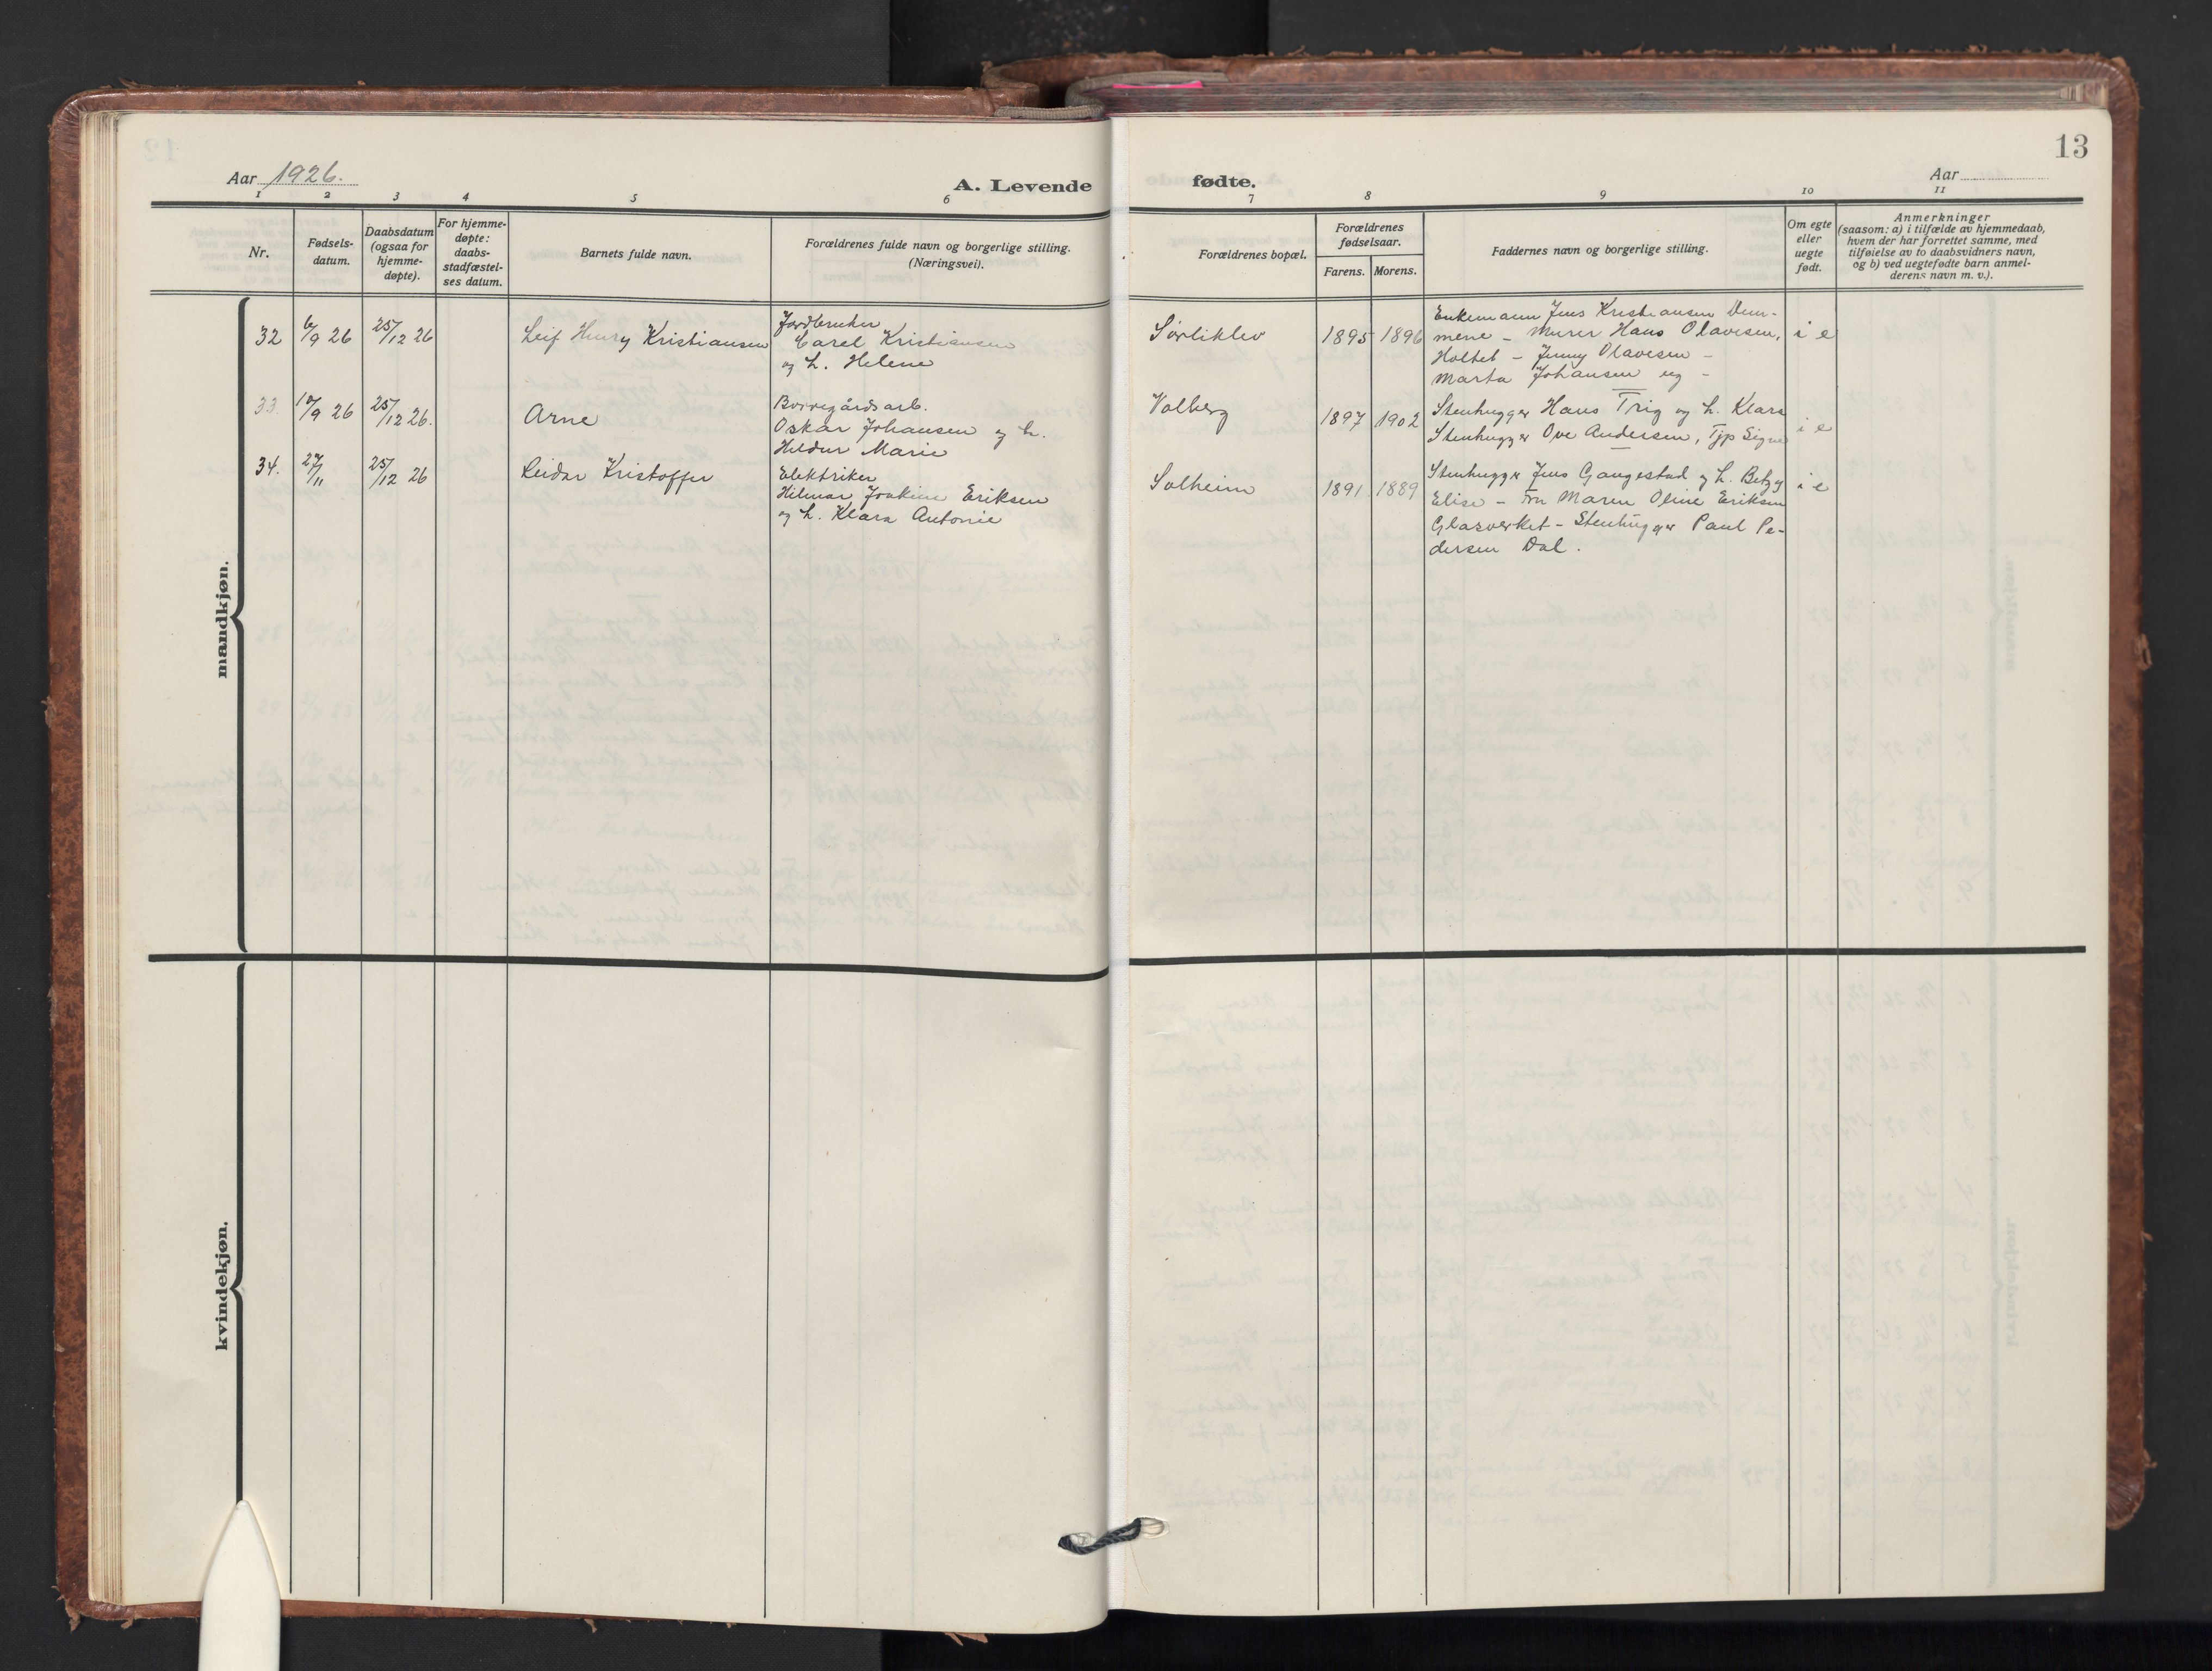 13
Aar 1926.
A. Levende fødte.
Aar
1 2 3 4 5 6 7 8 9 10 11
Nr.
Fødsels-
datum.
Daabsdatum
(ogsaa for
hjemme-
døpte).
For hjemme-
døpte:
daabs-
stadfæstel-
ses datum.
Barnets fulde navn.
Forældrenes fulde navn og borgerlige stilling.
(Næringsvei).
Forældrenes bopæl.
Forældrenes
fødselsaar.
Farens. Morens.
Faddernes navn og borgerlige stilling.
Om egte
eller
uegte
født.
Anmerkninger
(saasom: a) i tilfælde av hjemmedaab,
hvem der har forrettet samme, med
tilføielse av to daabsvidners navn,
og b) ved uegtefødte barn anmel-
derens navn m. v.).
mandkjøn.
32 6/9 26 25/12 26 Leif Henry Kristiansen
Jordbruker
Carel Kristiansen
og h. Helene
Sørliklev 1895 1896
Enkemann Jens Kristiansen Dem-
mene - Murer Hans Olavesen,
Holtet - Jenny Olavesen -
Marta Johansen ug -
i e
33. 25/12 26. Arne
Borregårdsarb.
Oskar Johansen og h.
Hildur Marie
Volberg 1897 1902
Stenhugger Hans Trig og h. Klara
Stenhugger Ove Andersen, Tjp Signe
i e
34. 27/11 25/12 26 Reidar Kristoffer
Elektriker
Hilmar Joakim Eriksen
og h. Klara Antonie
Solheim 1891 1889
Stenhugger Jens Gangestad og h. Betzy
Elise - Fru Maren Oline Eriksen
Glasverket - Stenhugger Paul Pe-
dersen Dal.
i e
kvindekjøn.